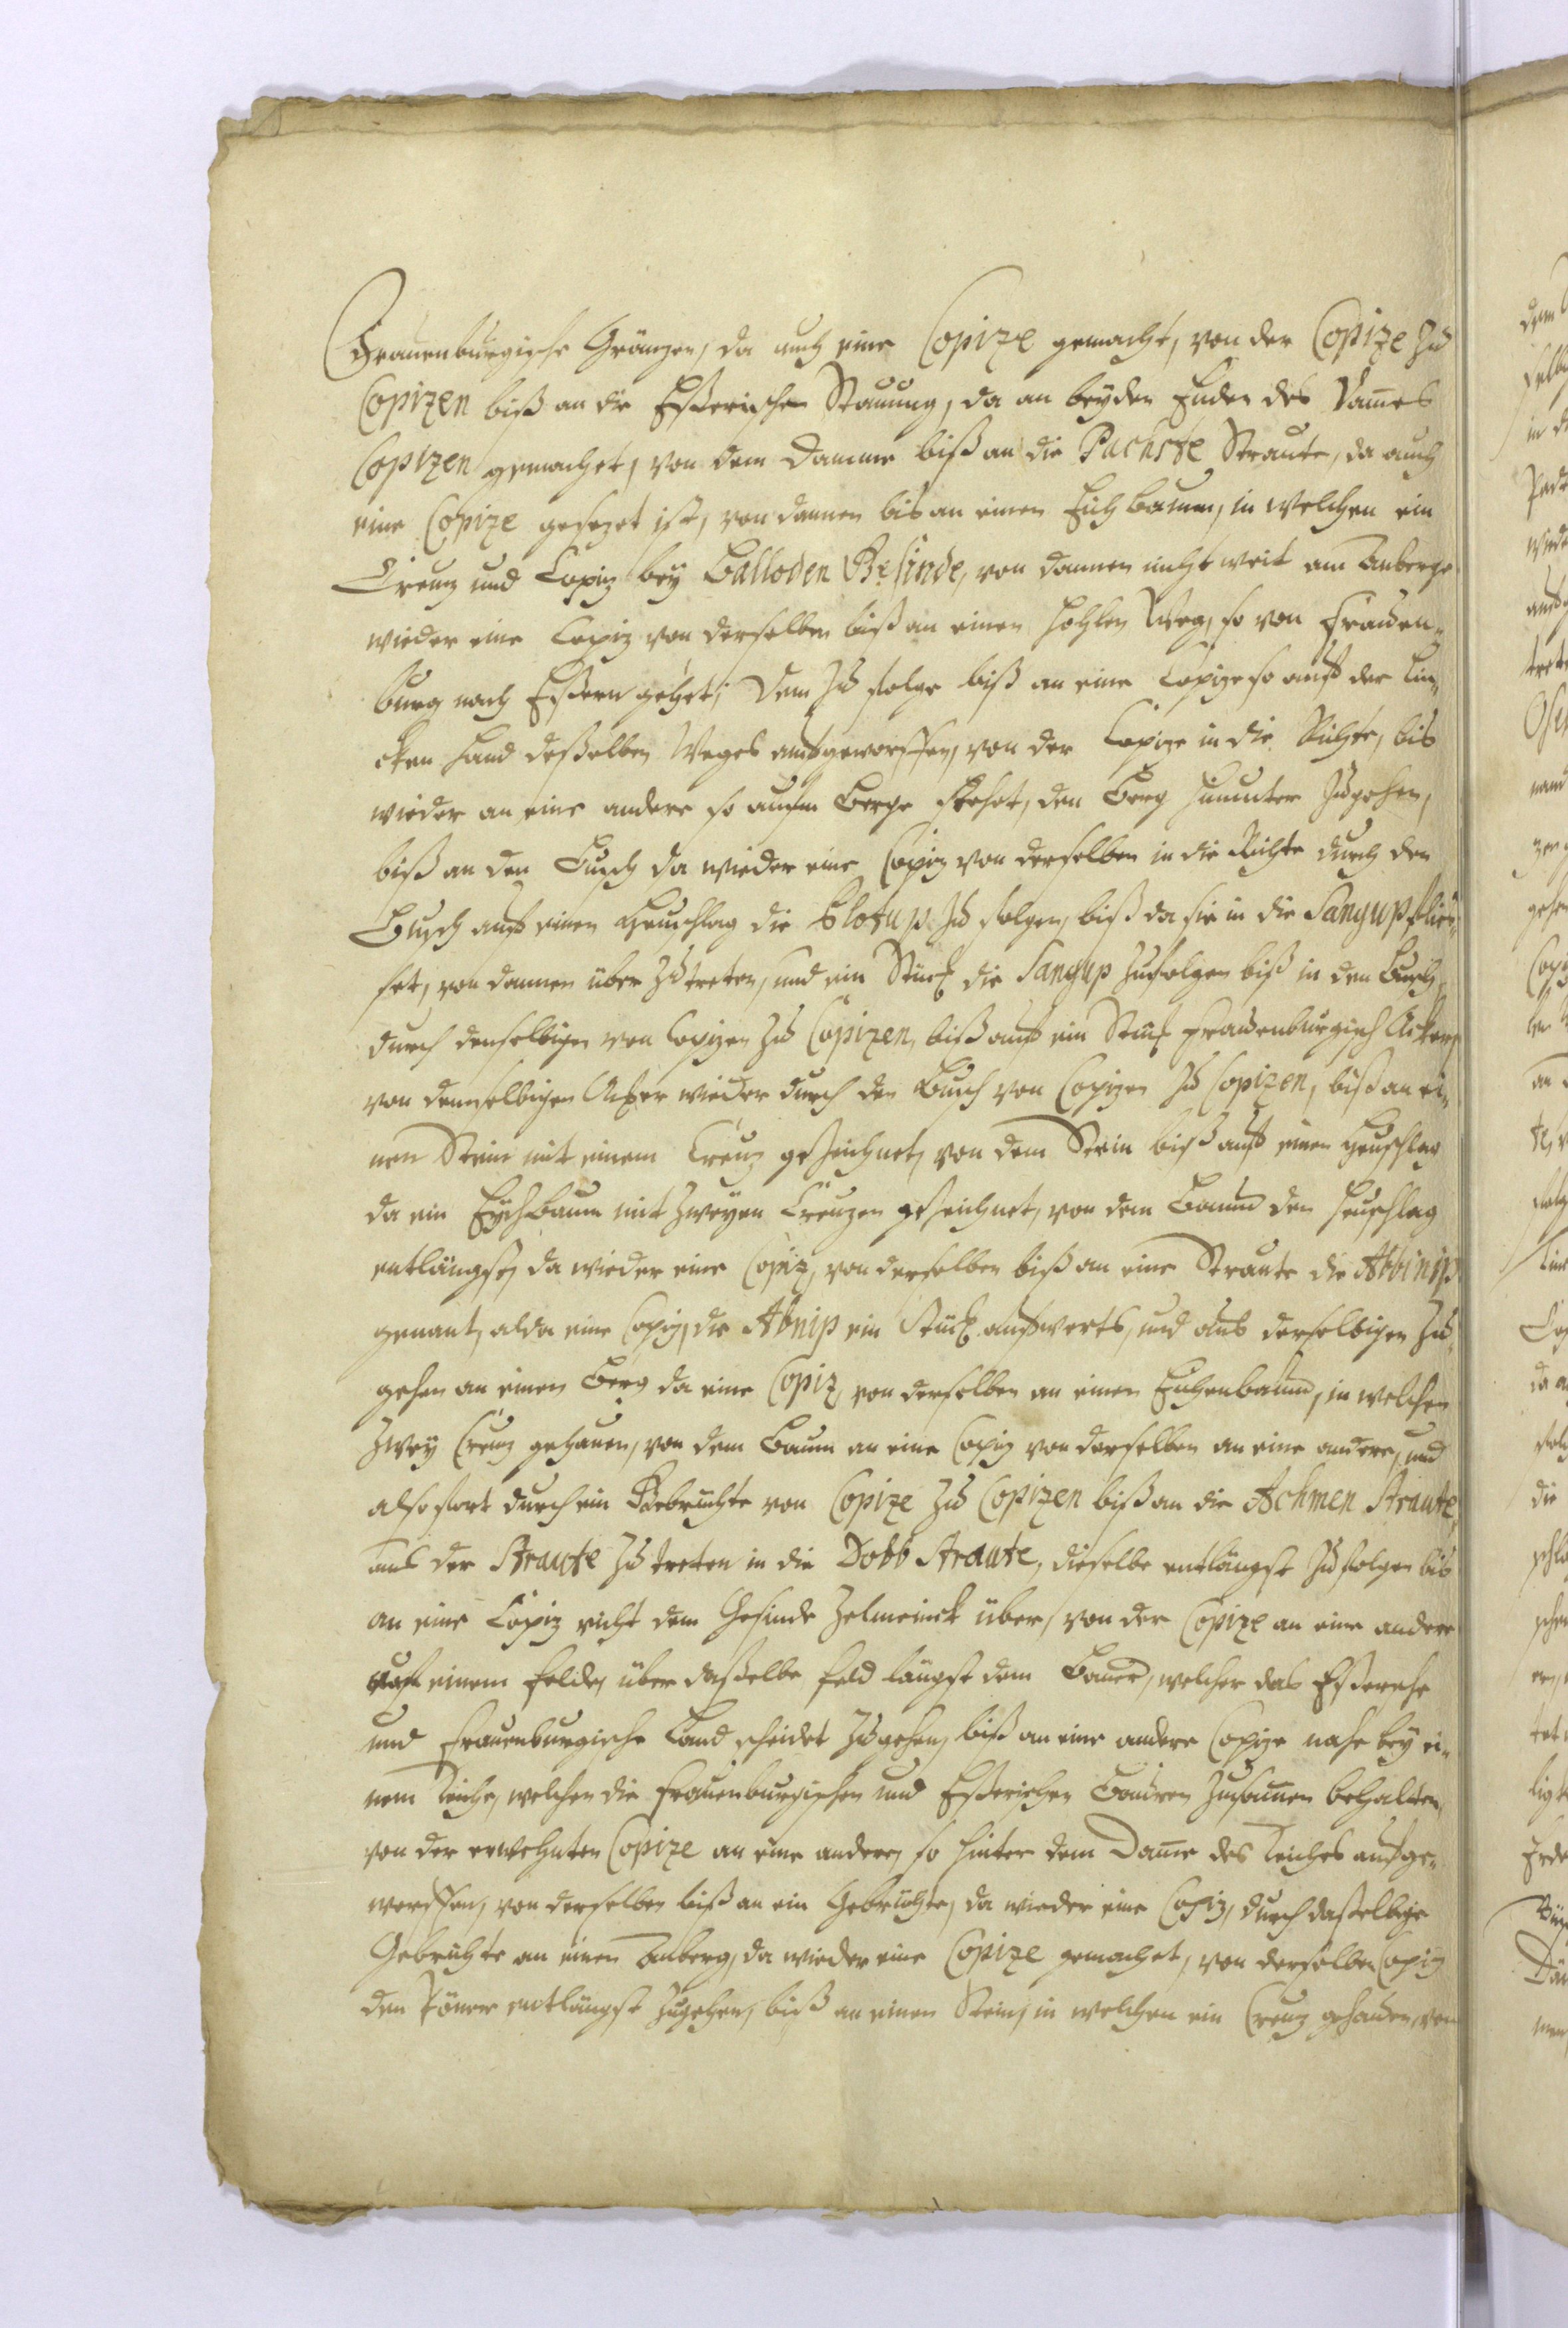 Frauenburgische Gränzen, da auch eine Copize gemacht, von der Copize zu
Copizen biß an die Eßerischen Stauung, da an beyden Enden des Dames
Copizen gemachet, von dem Damme biß an die Puchste Straute, da auch
eine Copize gesezet ist, von dannen bis an einen Eich baum, in welchen ein
Creuz und Copiz bey Balloden Gesinde, von dannen nicht weit am anberge
wieder eine Copiz von derselben biß an einen hohlen Weg, so von Frauen¬
burg nach Eßern gehet, dem zu folge biß an eine Copize so auff der lin¬
cken Hand deßelben Weges aufgeworffen, von der Copize in die Richte, bis
wieder an eine andere so aufm Berge stehet, den Berg hinunter zugehen,
biß an den Busch da wieder eine Copiz von derselben in die Richte durch den
Busch auff einen Heuschlag die Clotup zu folgen, biß da sie in die Sangup flie¬
set, von dannen über zu treten, und ein Stück die Sangup zufolgen biß in den Busch,
durch denselbigen von Copizen zu Copizen, biß auff ein Stück Frauenburgisch Acker,
von demselbigen Acker wieder durch den Busch von Copizen zu Copizen, biß an ei¬
nen Stein mit einem Creuz gezeichnet, von dem Stein biß auff einen Heuschlag
da ein Eychbaum mit zweyen Creuzen gezeichnet, von dem Baum den Heuschlag
entlängst, da wieder eine Copiz, von derselben biß an eine Straute die Abbinip
genant, alda eine Copiz, die Abnip ein Stück auffwerts, und aus derselbigen zu
gehen an einen Berg da eine Copiz, von derselben an einen Eichenbaum, in welchen
zwey Creuz gehauen, von dem Baum an eine Copiz von derselben an eine andere, und
also fort durch ein Gebrüchte von Copize zu Copizen biß an die Achmen Straute,
aus der Straute zu treten in die Dobb Straute, dieselbe entlängst zu folgen bis
an eine Copiz richt dem Gesinde Zelmeinck über, von der Copize an eine andere
auf einem Felde, über daßelbe Feld längst dem Bauer, welcher das Eßersche
und Frauenburgische Land scheidet zu gehen, biß an eine andere Copize nahe bey ei¬
nem Teiche, welchen die Frauenburgischen und Eßerischen Bauren zusamen behalten,
von der erwehnten Copize an eine andere, so hinter dem Dame des Teiches aufge¬
worffen, von derselben biß an ein Gebrüchte, da wieder eine Copiz, durch daßelbige
Gebrüchte an einen anberg, da wieder eine Copize gemachet, von derselben Copiz
den entlängst zugehen, biß an einen Stein, in welchen ein Creuz gehauen, von